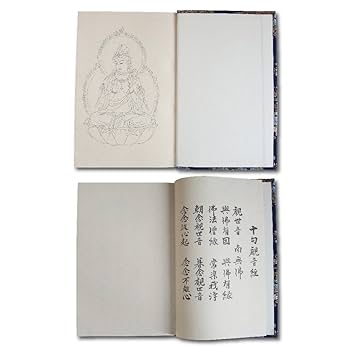 十句觀音經
觀世音 南無佛
與佛有因 與佛有緣
佛法僧緣 常樂我淨
朝念觀世音 暮念觀世音
念念從心起 念念不離心